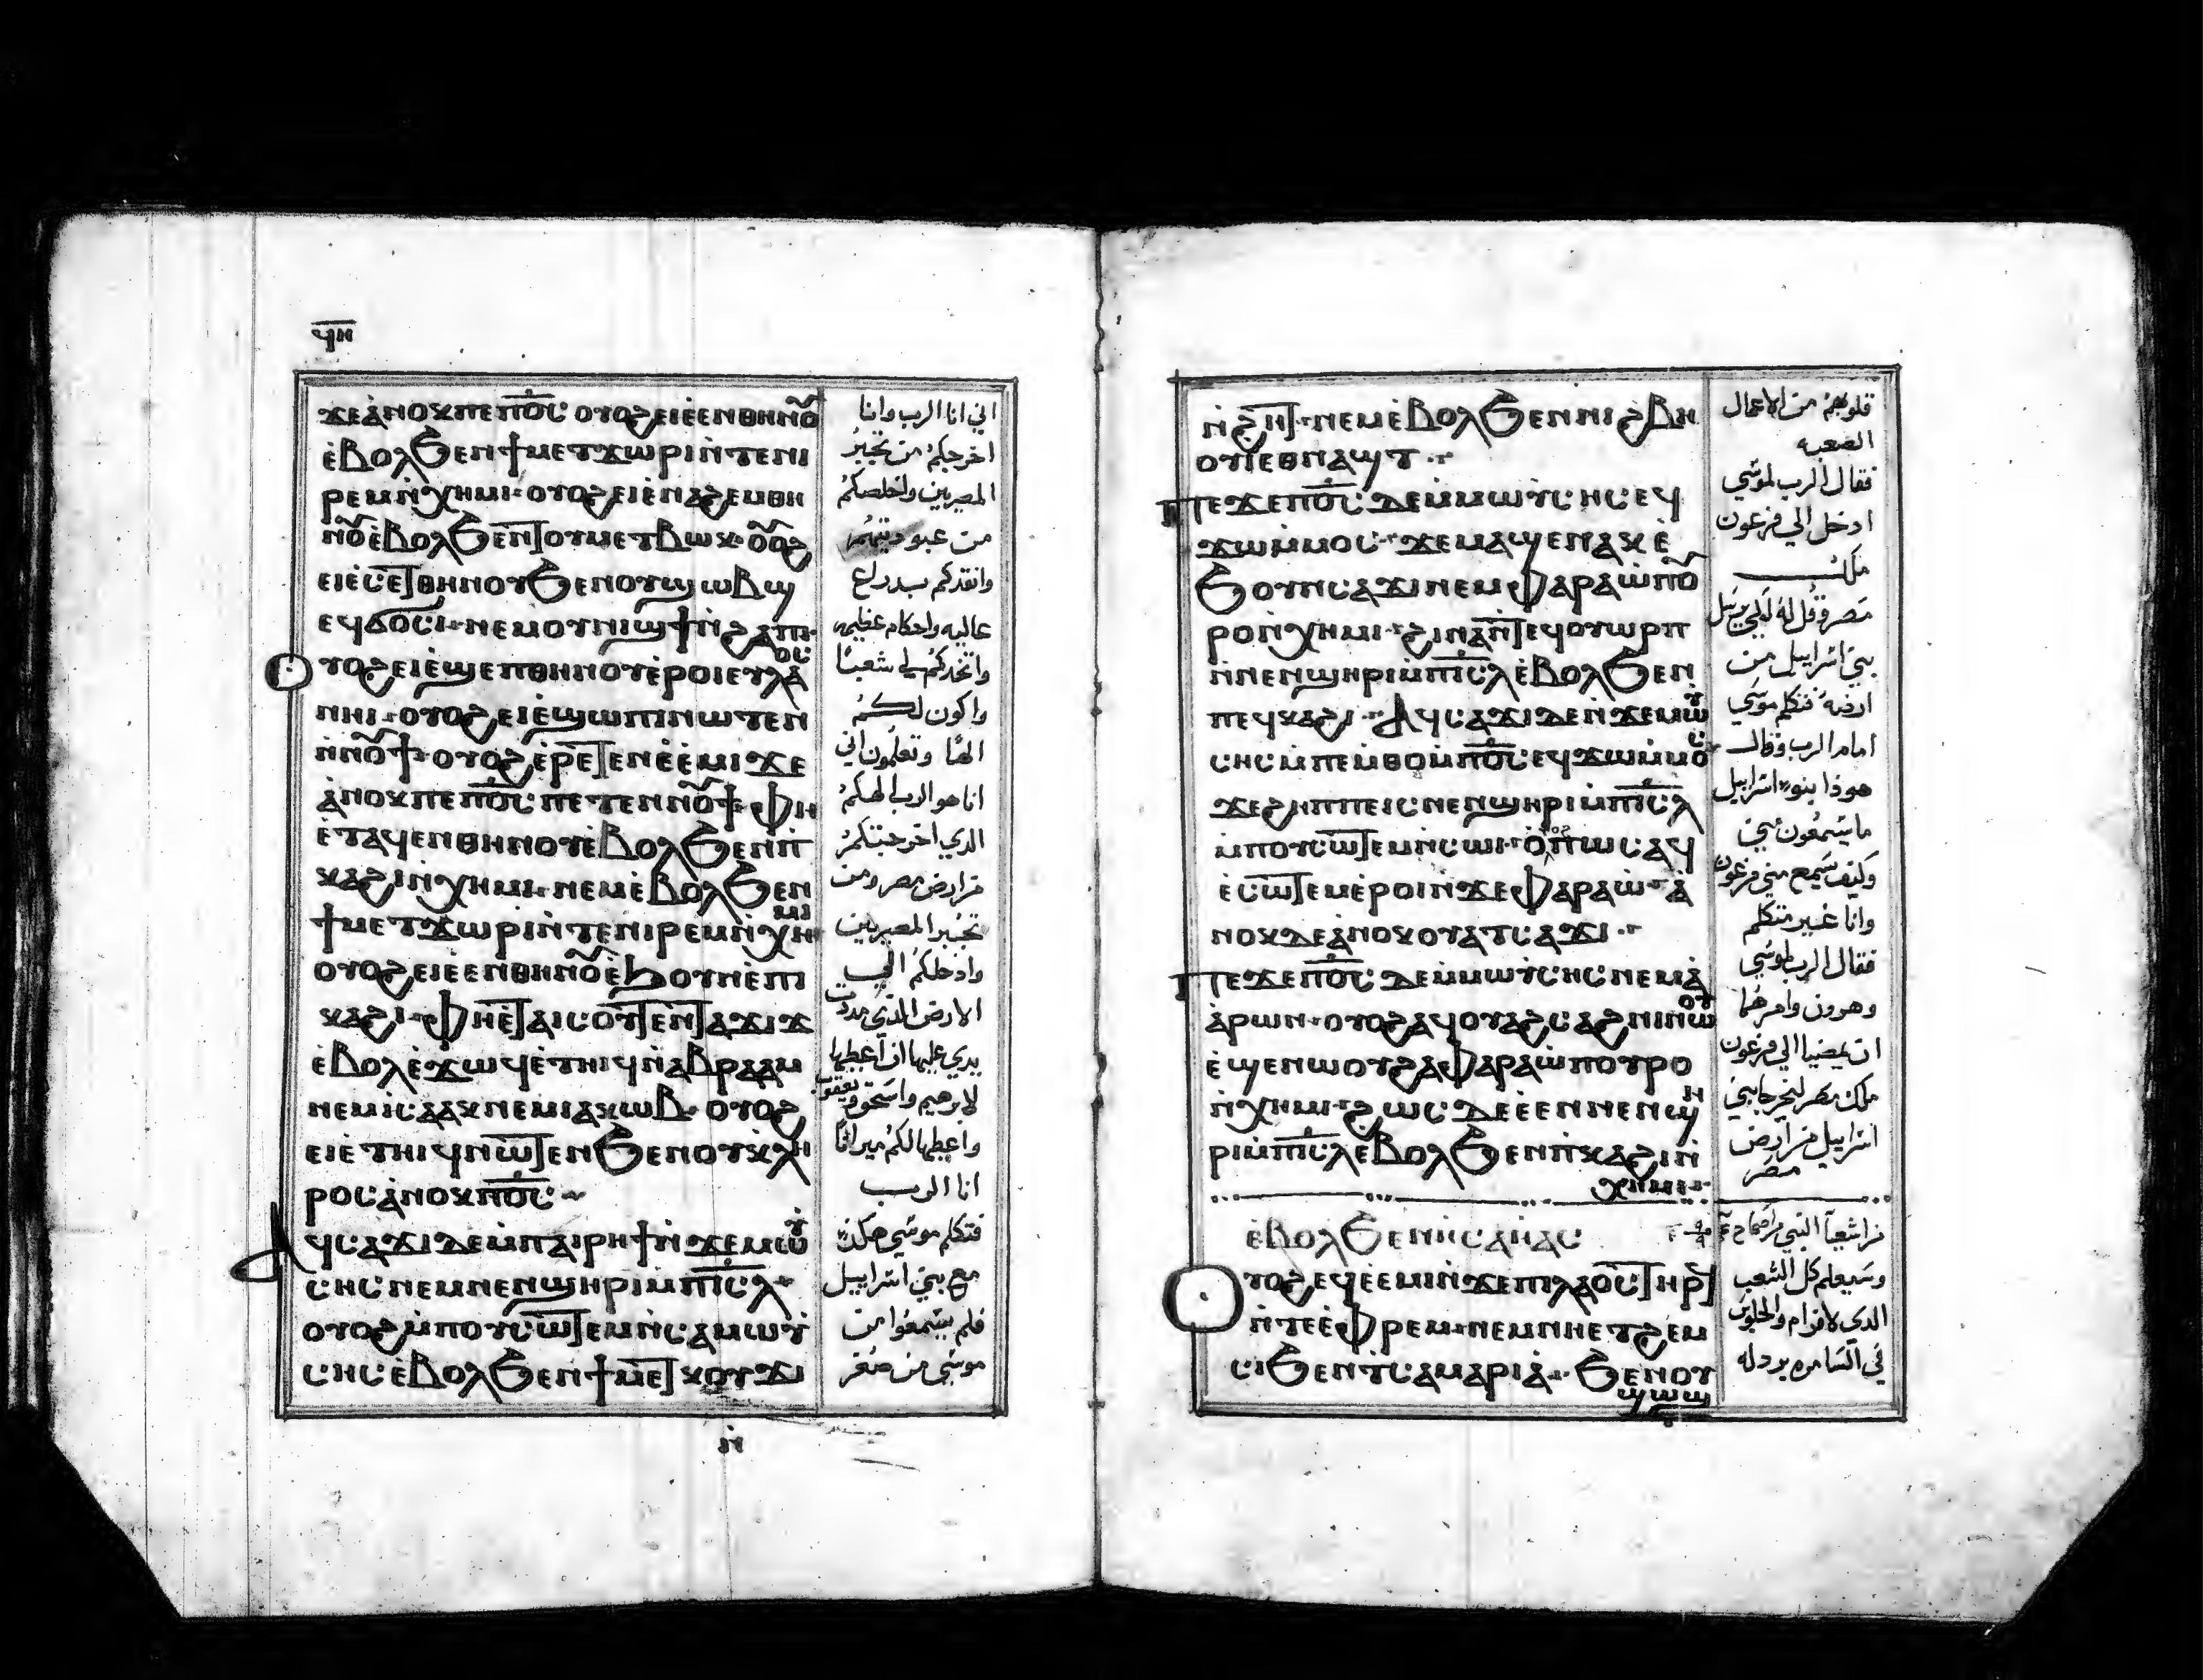 ϥⲏ
ϫⲉⲁ̀ⲛⲟⲕⲡⲉⲡ̅ⲟ̅ⲥ̅ ⲟⲩⲟϩⲉⲓⲉ̀ⲉⲛⲑⲏⲛⲟ̅
ⲉ̀ⲃⲟⲗϧⲉⲛϯⲙⲉⲧϫⲱⲣⲓⲛ̀ⲧⲉⲛⲓ
ⲣⲉⲙⲛ̀ⲭⲏⲙⲓ· ⲟⲩⲟϩⲉⲓⲉ̀ⲛⲁϩⲉⲙⲑⲏ
ⲛⲟ̅ⲉ̀ⲃⲟⲗϧⲉⲛⲧⲟⲩⲙⲉⲧⲃⲱⲕ· ⲟ̅ⲟ̅ϩ
ⲉⲓⲉ̀ⲥⲉⲧⲑⲏⲛⲟⲩϧⲉⲛⲟⲩϣⲱⲃϣ
ⲉϥϭⲟⲥⲓ· ⲛⲉⲙⲟⲩⲛⲓϣϯⲛ̀ϩⲁⲡ·
ⲟⲩⲟϩⲉⲓⲉ̀ϣⲉⲡⲑⲏⲛⲟⲩⲉ̀ⲣⲟⲓⲉⲩⲗⲁⲟⲥ
ⲛⲏⲓ· ⲟⲩⲟϩⲉⲓⲉ̀ϣⲱⲡⲓⲛⲱⲧⲉⲛ
ⲛ̀ⲛⲟ̅ϯ· ⲟⲩⲟϩⲉ̀ⲣⲉⲧⲉⲛⲉ̀ⲉ̀ⲙⲓϫⲉ
ⲁ̀ⲛⲟⲕⲡⲉⲡ̅ⲟ̅ⲥ̅ⲡⲉⲧⲉⲛⲛⲟ̅ϯ· ⲫⲏ
ⲉ̀ⲧⲁϥⲉⲛⲑⲏⲛⲟⲩⲉ̀ⲃⲟⲗϧⲉⲛⲡ̀
ⲕⲁϩⲓⲛ̀ⲭⲏⲙⲓ· ⲛⲉⲙⲉ̀ⲃⲟⲗϧⲉⲛ
ϯⲙⲉⲧϫⲱⲣⲓⲛ̀ⲧⲉⲛⲓⲣⲉⲙⲛ̀ⲭⲏⲙⲓ
ⲟⲩⲟϩⲉⲓⲉ̀ⲉⲛⲑⲏⲛⲟ̅ⲉ̀ϧⲟⲩⲛⲉ̀ⲡⲓ
ⲕⲁϩⲓ· ⲫⲏⲉ̀ⲧⲁⲓⲥⲟⲩⲧⲉⲛⲧⲁϫⲓϫ
ⲉ̀ⲃⲟⲗⲉ̀ϫⲱϥⲉ̀ⲧⲏⲓϥⲛ̀ⲁⲃⲣⲁⲁⲙ
ⲛⲉⲙⲓⲥⲁⲁⲕⲛⲉⲙⲓⲁⲕⲱⲃ· ⲟⲩⲟϩ
ⲉⲓⲉ̀ⲧⲏⲓϥⲛⲱⲧⲉⲛϧⲉⲛⲟⲩⲕⲗⲏ
ⲣⲟⲥⲁ̀ⲛⲟⲕⲡ̅ⲟ̅ⲥ̅
ⲁϥⲥⲁϫⲓⲇⲉⲙ̀ⲡⲁⲓⲣⲏϯⲛ̀ϫⲉⲙⲱⲩ̀
ⲥⲏⲥⲛⲉⲙⲛⲉⲛϣⲏⲣⲓⲙ̀ⲡ̅ⲓ̅ⲥ̅ⲗ̅
ⲟⲩⲟϩⲙ̀ⲡⲟⲩⲥⲱⲧⲉⲙⲛ̀ⲥⲁⲙⲱⲩ̀
ⲥⲏⲥⲉ̀ⲃⲟⲗϧⲉⲛϯⲙⲉⲧⲕⲟⲩϫⲓ
ⲛ̀
اني انا الرب وانا
اخرجكم من تجبر
المصريين واخلصكم
من عبوديتهم
وانقدكم بدراع
عاليه واحكام عظيمه
واتخدكم لي شعبًا
واكون لكم
الهًا وتعلمون اني
انا هو الرب الهكم
الدي اخرجتكم
من ارض مصر ومن
تجبر المصريين
وادخلكم الي
الارض التي مددت
يدي عليها ان اعطيها
لابرهيم واسحق ويعقوب
واعطيها لكم ميراثًا
انا الرب
فتكلم موسي هكذا
مع بني اسراييل
فلم يسمعوا من
موسي من صغر
ⲛ̀ϩⲏⲧ· ⲛⲉⲙⲉ̀ⲃⲟⲗϧⲉⲛⲛⲓϩⲃⲏ
ⲟⲩⲓⲉⲑⲛⲁϣⲧ
ⲡⲉϫⲉⲡ̅ⲟ̅ⲥ̅ ⲇⲉⲙ̀ⲙⲱⲩ̀ⲥⲏⲥⲉϥ
ϫⲱⲙ̀ⲙⲟⲥ· ϫⲉⲙⲁϣⲉⲛⲁⲕⲉ̀
ϧⲟⲩⲛⲥⲁϫⲓⲛⲉⲙⲫⲁⲣⲁⲱ̀ⲡⲟ̅
ⲣⲟⲛ̀ⲭⲏⲙⲓ· ϩⲓⲛⲁⲛ̀ⲧⲉϥⲟⲩⲱⲣⲡ
ⲛ̀ⲛⲉⲛϣⲏⲣⲓⲙ̀ⲡ̅ⲓ̅ⲥ̅ⲗ̅ⲉ̀ⲃⲟⲗϧⲉⲛ
ⲡⲉϥⲕⲁϩⲓ· ⲁϥⲥⲁϫⲓⲇⲉⲛ̀ϫⲉⲙⲱⲩ̀
ⲥⲏⲥⲙ̀ⲡⲉⲙ̀ⲑⲟⲙ̀ⲡ̅ⲟ̅ⲥ̅ⲉϥϫⲱⲙ̀ⲙⲟⲥ
ϫⲉϩⲏⲡⲡⲉⲓⲥⲛⲉⲛϣⲏⲣⲓⲙ̀ⲡ̅ⲓ̅ⲥ̅ⲗ̅
ⲙ̀ⲡⲟⲩⲥⲱⲧⲉⲙⲛ̀ⲥⲱⲓ· ⲟ̅ⲡⲱⲥⲁϥ
ⲉ̀ⲥⲱⲧⲉⲙⲉ̀ⲣⲟⲓⲛ̀ϫⲉⲫⲁⲣⲁⲱ̀· ⲁ̀
ⲛⲟⲕⲇⲉⲁ̀ⲛⲟⲕⲟⲩⲁⲧⲥⲁϫⲓ
ⲡⲉϫⲉⲡ̅ⲟ̅ⲥ̅ ⲇⲉⲙ̀ⲙⲱⲩ̀ⲥⲏⲥⲛⲉⲙⲁ̀
ⲁ̀ⲣⲱⲛ· ⲟⲩⲟϩⲁϥⲟⲩⲁϩⲥⲁϩⲛⲓⲛⲱⲟⲩ
ⲉ̀ϣⲉⲛⲱⲟⲩϩⲁⲫⲁⲣⲁⲱ̀ⲡⲟⲩⲣⲟ
ⲛ̀ⲭⲏⲙⲓ· ϩⲱⲥⲇⲉⲉ̀ⲉⲛⲛⲉⲛϣⲏ
ⲣⲓⲙ̀ⲡ̅ⲓ̅ⲥ̅ⲗ̅ⲉ̀ⲃⲟⲗϧⲉⲛⲡ̀ⲕⲁϩⲓⲛ̀
ⲭⲏⲙⲓ
ⲉ̀ⲃⲟⲗϧⲉⲛⲏⲥⲁⲏⲁⲥ
ⲟⲩⲟϩⲉϥⲉ̀ⲉⲙⲓⲛ̀ϫⲉⲡⲓⲗⲁⲟⲥⲧⲏⲣϥ
ⲛ̀ⲧⲉⲉ̀ⲫⲣⲉⲙ· ⲛⲉⲙⲛⲏⲉⲧϩⲉⲙ
ⲥⲓϧⲉⲛⲧⲥⲁⲙⲁⲣⲓⲁ̀· ϧⲉⲛⲟⲩ
ϣⲱϣ
قلوبهم من الاعمال
الصعبه
فقال الرب لموسي
ادخل الي فرعون
ملك
مصر وقل له لكي يرسل
بني اسراييل من
ارضه فتكلم موسي
امام الرب وقال
هوذا بنو اسراييل
ما يسمعون مني
وكيف يسمع مني فرعون
وانا غير متكلم
فقال الرب لموسي
وهرون وامرهما
ان يمضيا الي فرعون
ملك مصر ليخرجا بني
اسراييل من ارض
مصر
من اشعيا النبي
وسيعلم كل الشعب
الدي لافرام والجلوس
في السامره